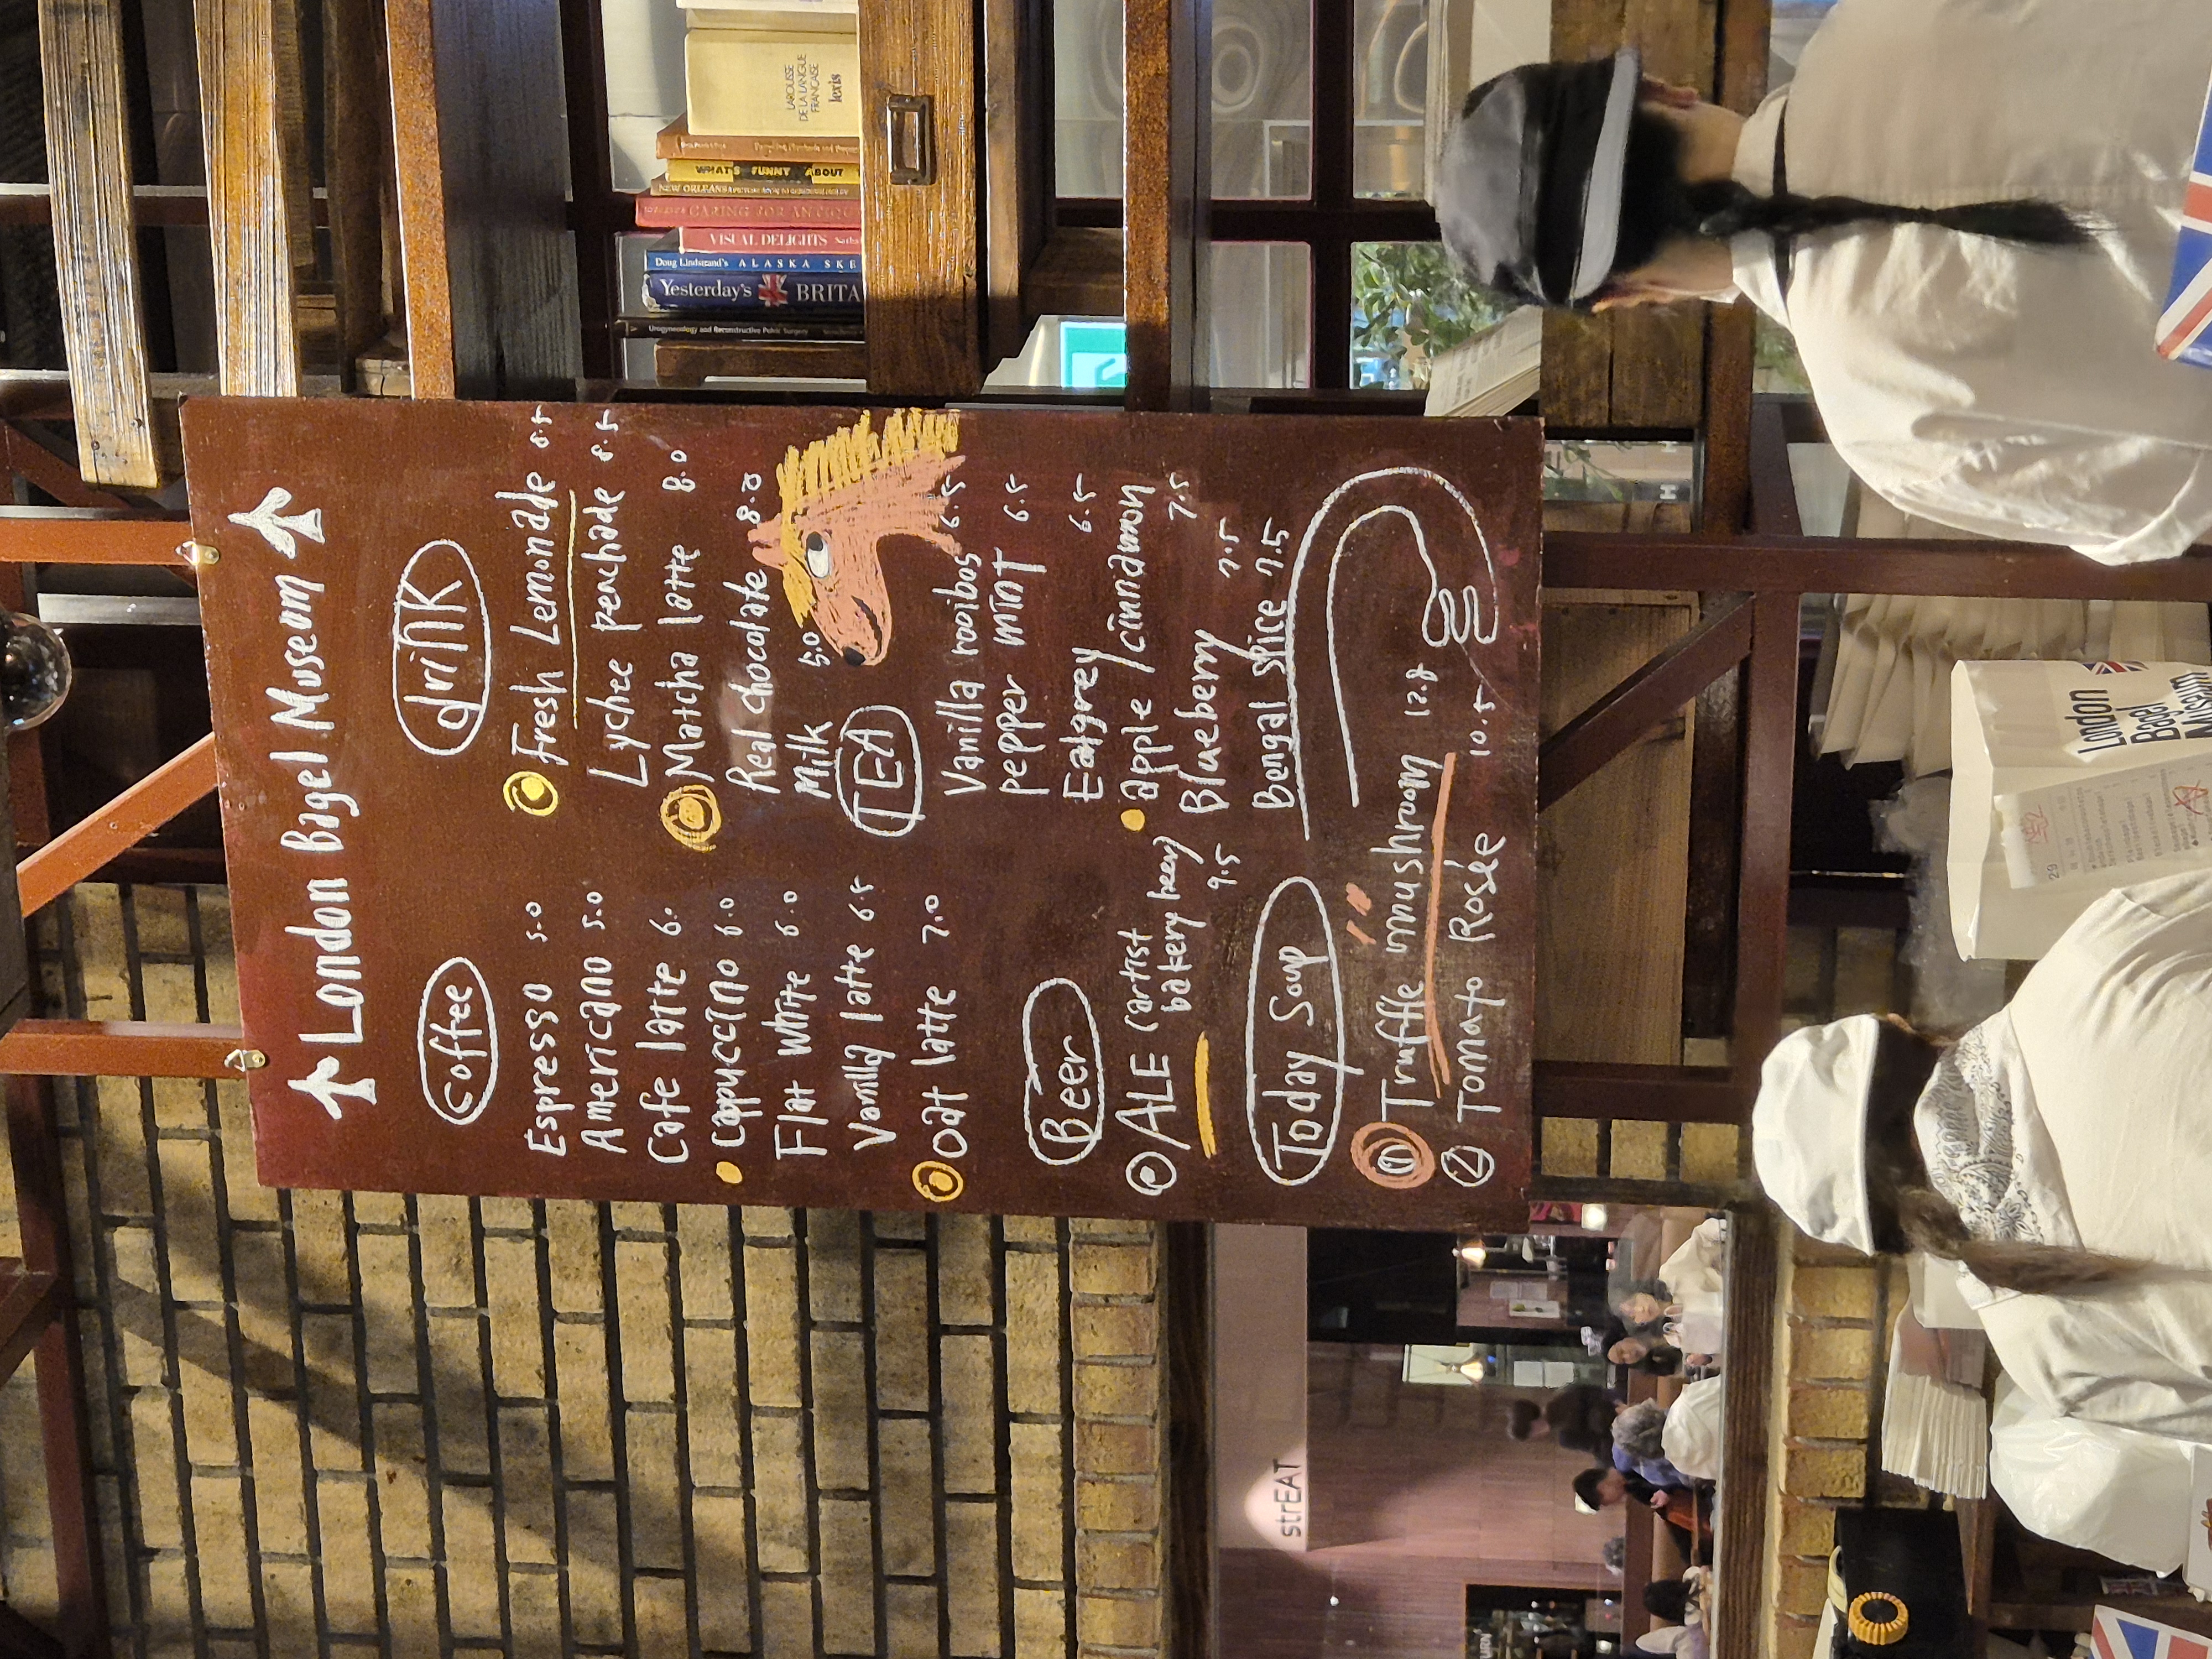 London Bagel Museom
Coffee
Espresso 5.0
Americano 5.0
Cafe latte 6.
Cappuccino 6.0
Flat white 6.0
Vanilla latte 6.5
Oat latte 7.0
Beer
ALE (artist
bakery beer)
9.5
Today Soup
① Truffle mushroom 12.8
② Tomato Rosée 10.5
drink
Fresh Lemonade 8.5
Lychee peachade 8.5
Matcha latte 8.0
Real chocolate 8.0
Milk 5.0
TEA
Vanilla rooibos 6.5
pepper mint 6.5
Ealgrey 6.5
apple/cinnamon 7.5
Blueberry 7.5
Bengal spice 7.5
LAROUSSE
DE LA LANGUE
FRANÇAISE
lexis
WHAT'S FUNNY ABOUT
NEW ORLEANS
CARING FOR ANTIQU
VISUAL DELIGHTS
Doug Lindstrand's ALASKA SKE
Yesterday's BRITA
Urogynecology and Reconstructive Pelvic Surgery
strEAT
London
Bagel
Museum
29